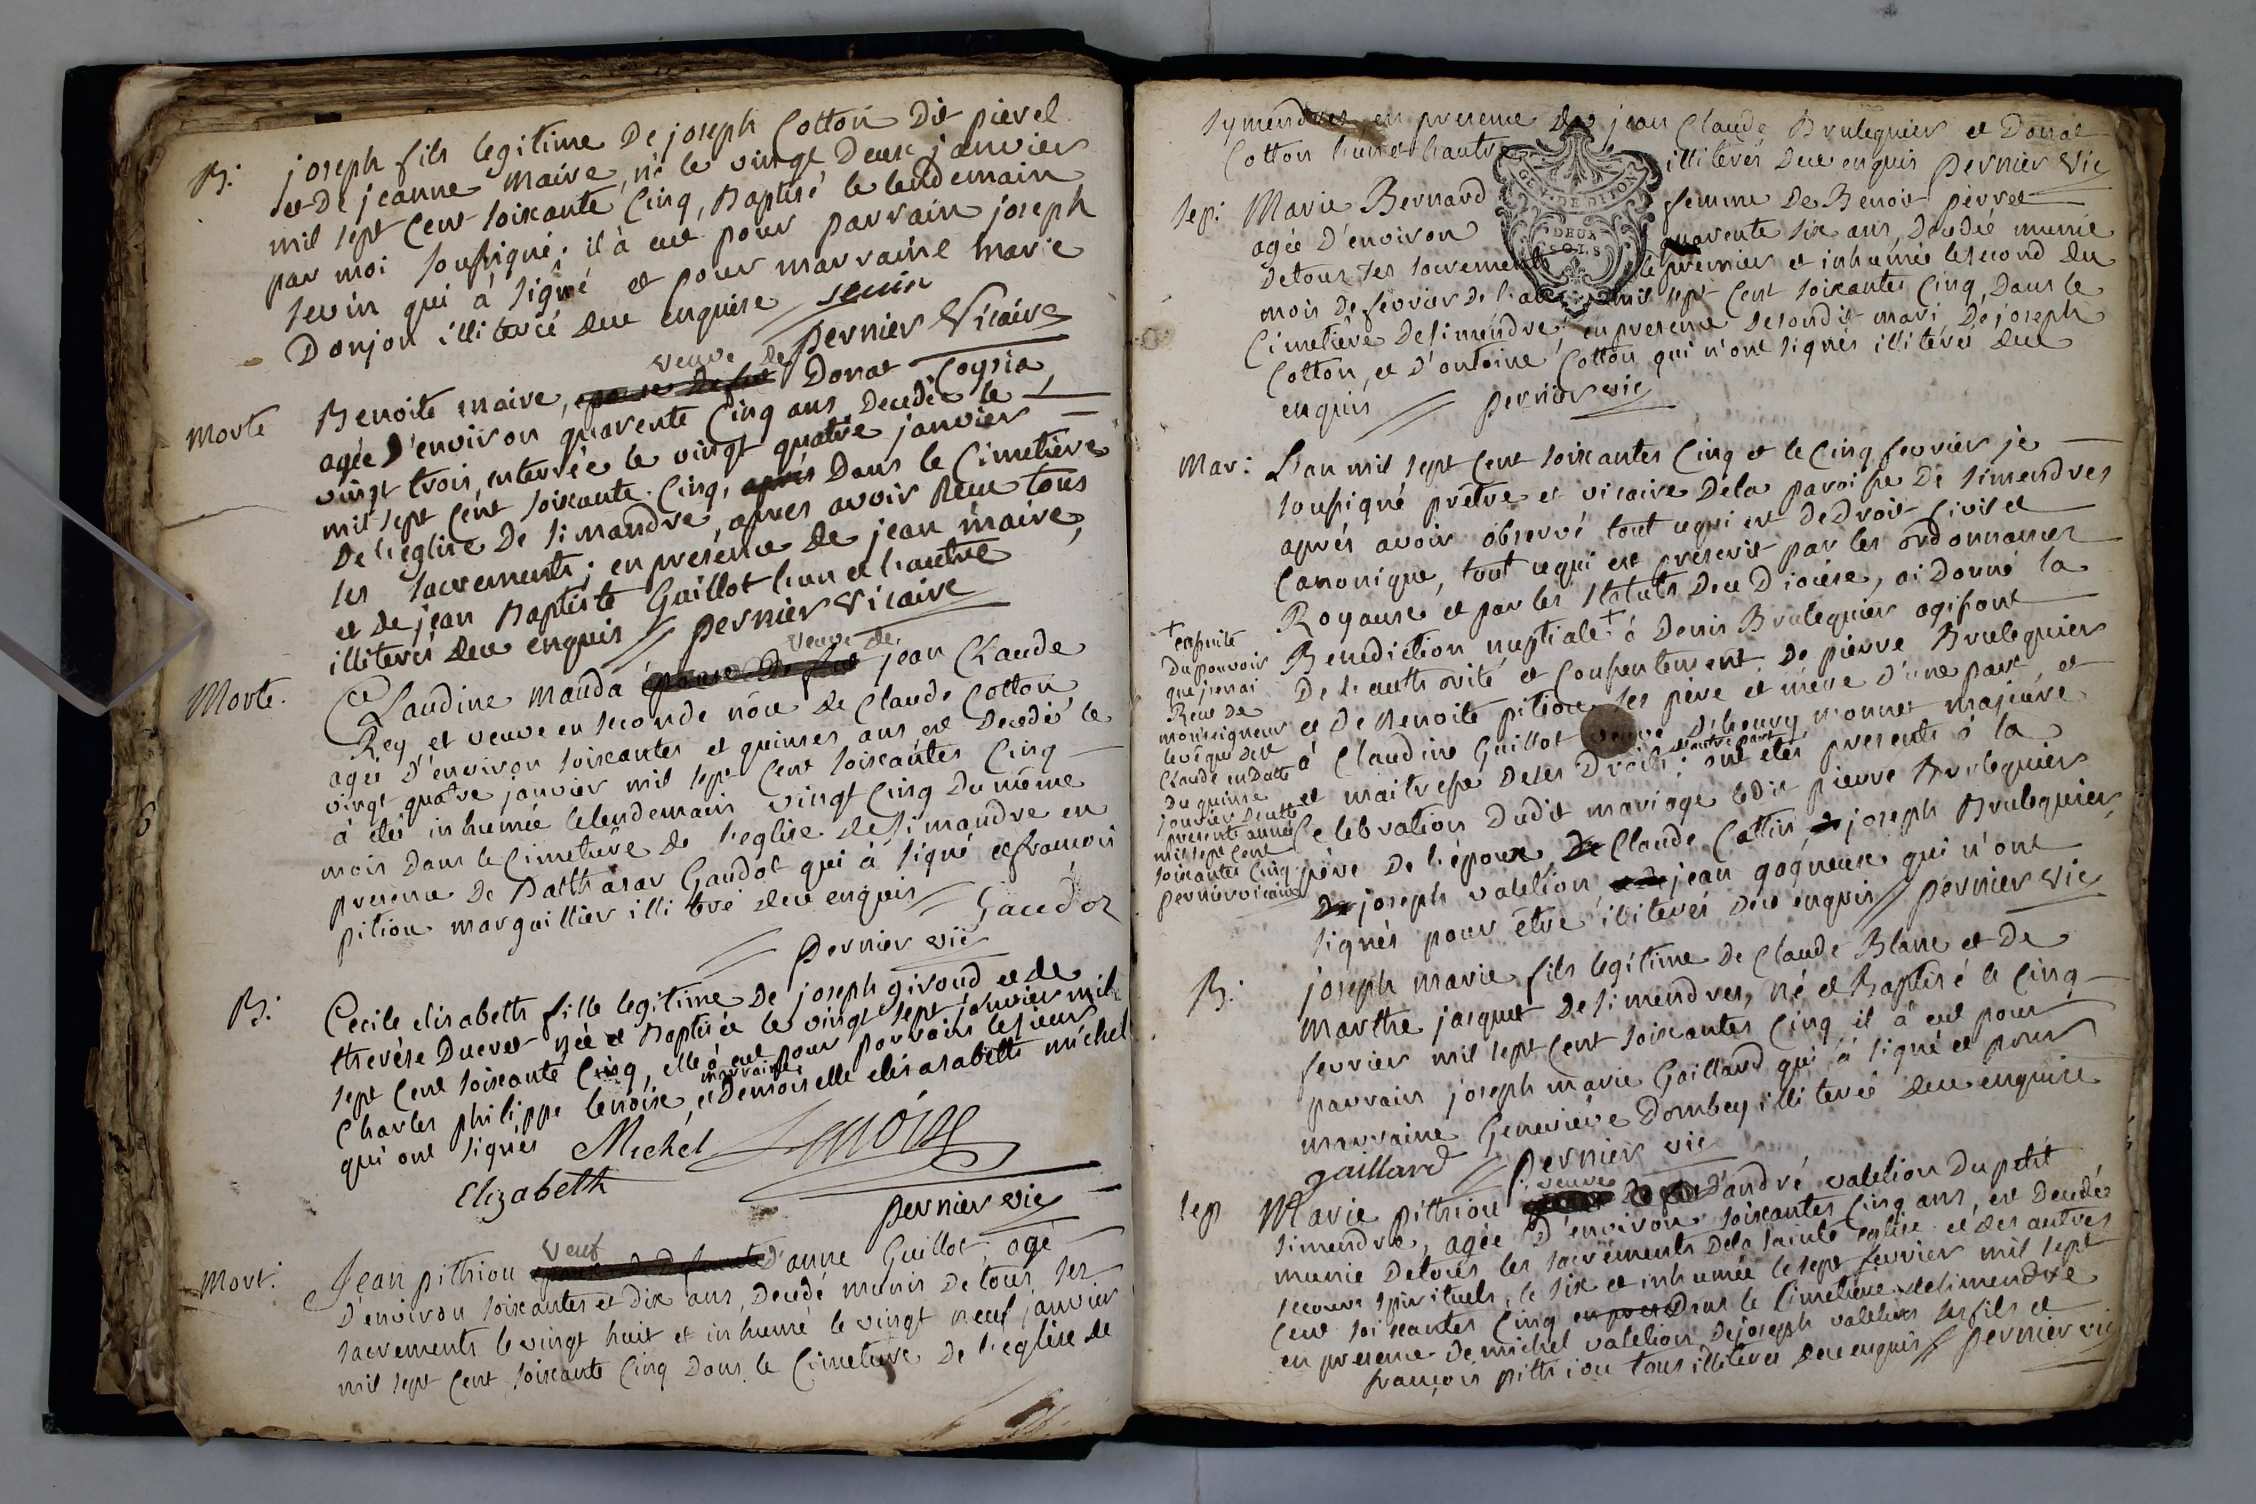 B: joseph fils legitime De joseph Cotton Dit pierel
et De jeanne Maire, né le vingt Deux janvier
mil sept Cent soixante Cinq, Baptisé le lendemain
par moi sousigné; il à eut pour parrain joseph
sevin qui à signé et pour marraine marie
Donjon illiterée deue enquise sevin
pernier Vicaire
Morte
veuve de
Benoite maire, Donat Coysia
agée D'environ quarente Cinq ans Decedée le
vingt trois, enterrée le vingt quatre janvier
mil sept Cent soixante Cinq, après Dans le Cimetière
De l'eglise De simandre, apres avoir Reçue tous
les sacrements; en presence de jean maire,
et de jean Baptiste Guillot l'un et l'autre
illiterés deue enquis pernier Vicaire
Morte.
veuve de
Claudine mauda jean Claude
Rey, et veuve en seconde nôce de Claude Cotton
agée D'environ soixantes et quinzes ans est decedée le
vingt quatre janvier mil sept Cent soixantes Cinq
à été inhumée le lendemain vingt Cinq du même
mois Dans le Cimetière de l'eglise de simandre en
presence De Balthasar Gaudot qui à signé et francois
pitiou marguillier illiteré deue enquis Gaudot
pernier vic
B: Cecile elisabeth fille legitime De joseph giroud et de
therèse Ducret née et Baptisée le vingt sept janvier mil
sept Cent soixante Cinq, elle à eut pour parrain le sieur
marraine
Charles philippe lenoise, et Demoiselle elisabeth michel
qui ont signés Michel Lenoise
Elizabeth
pernier vic
Mort:
Veuf
Jean pithiou d'anne Guillot, agé
D'environ soixantes et dix ans, Decedé munis De tous ses
sacrements le vingt huit et inhumé le vingt neuf janvier
mil sept Cent soixante Cinq Dans le Cimetière De l'eglise de
symendres en presence de jean Claude Bruleguier et Donat
Cotton l'un et l'autre illiterés deue enquis pernier Vic
sep: Marie Bernard femme De Benoit perret
GEN. DE DIJON
DEUX
SOLS
agée D'environ quarente six ans, Decedée munie
De tous ses sacrements le premier et inhumée le second du
mois De fevrier De l'an mil sept Cent soixantes Cinq, Dans le
Cimetière De simendre, en presence De sondit mari De joseph
Cotton, et D'antoine Cotton qui n'ont signés illiterés deue
enquis pernier vic
Mar: L'an mil sept Cent soixantes Cinq et le Cinq fevrier je
sousigné prêtre et vicaire De la paroisse De simendres
aprés avoir observé tout ce qui est De Droit Civil et
Canonique, tout ce qui est prescrit par les ordonnances
Royaux et par les statuts Deu Diocèse, ai Donné la
Benediction nuptiale + à Denis Bruleguier agissant
De l'authorité et Consentement De pierre Bruleguier
et De Benoite pitiou ses père et mère D'une part et
à Claudine Guillot veuve D'henry monnet majeure
d'autre part
et maitresse De ses Droits; ont étés presents à la
Celebration Dudit mariage ledit pierre Bruleguier
père De l'époux Claude Cattin joseph Bruleguier,
joseph valetion jean gogneux qui n'ont
signés pour être illiterés deue enquis pernier vic
+ ensuite
Du pouvoir
que j'en ai
Reçue De
monseigneur
levêque De st
Claude en Datte
Du quinse
janvier De cette
presente année
mil sept Cent
soixantes Cinq
pernier vicaire
B: joseph marie fils legitime De Claude Blanc et De
Marthe jacquet De simendres, né et Baptisé le Cinq
fevrier mil sept Cent soixantes Cinq il à eut pour
parrain joseph marie Gaillard qui à signé et pour
marraine Geneviève Dombey illiterée deue enquise
gaillard pernier vic
veuve
sep Marie pithiou D'andré valetion Du petit
simendre, agée D'environ soixantes Cinq ans, est Decedée
munie De tous les sacrements De la sainte eglise et des autres
secours spirituels, le six et inhumée le sept fevrier mil sept
Cent soixantes Cinq Dans le Cimetière De simendre
en presence De michel valetion, De joseph valetion ses fils et
françois pithiou tous illiterés deue enquis pernier vic